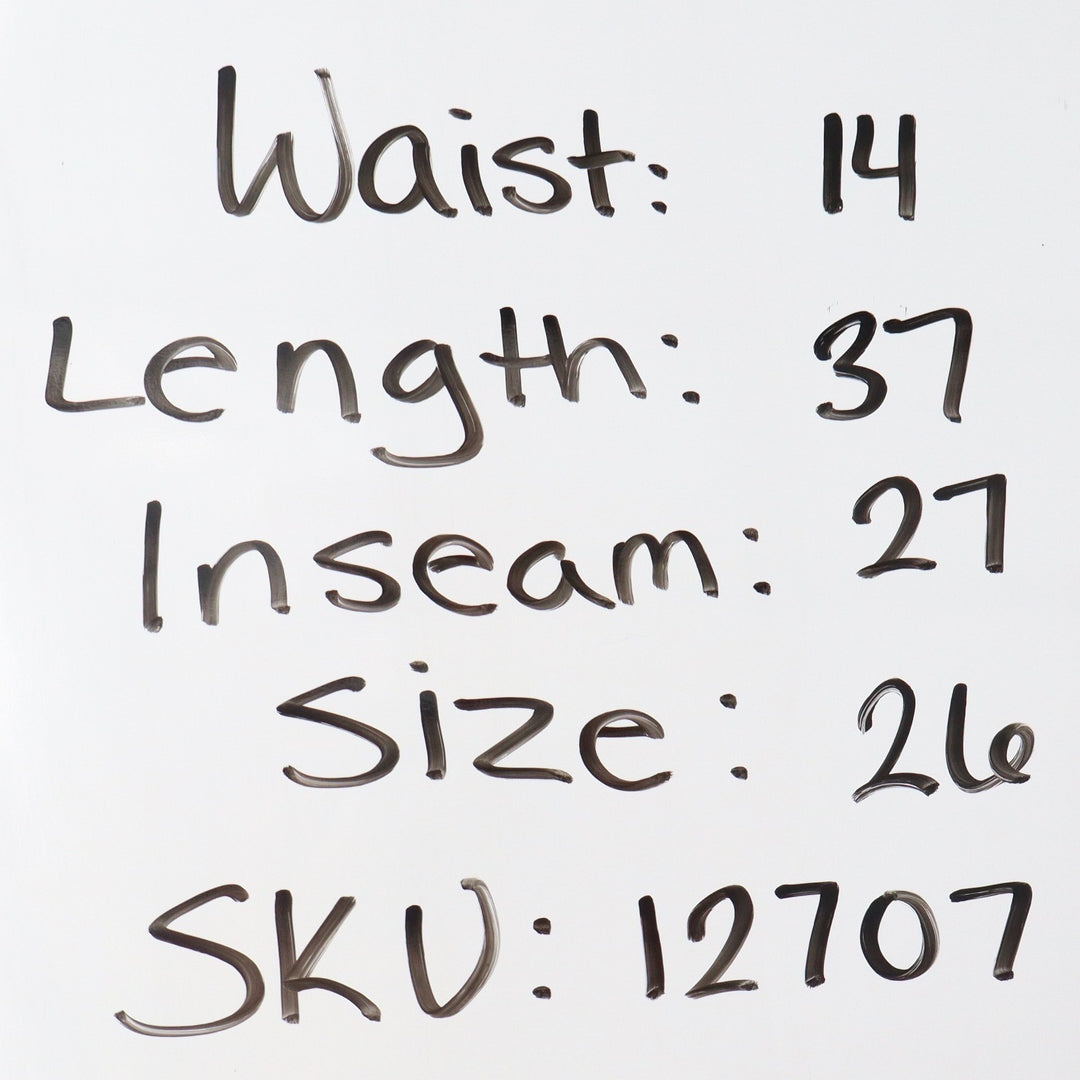 Waist: 14
Length: 37
Inseam: 27
Size: 26
SKU: 12707